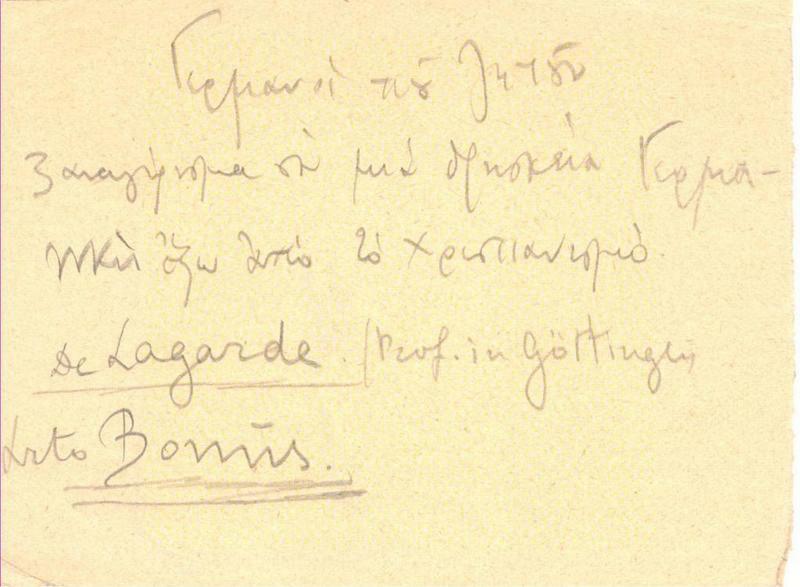 Γερμανοί ποῦ ζητοῦν
ξαναγύρισμα σὲ μιὰ θρησκεία Γερμα-
νικὴ ἔξω ἀπὸ τὸ Χριστιανισμό.
De Lagarde. (Prof. in Göttingen
Bonus.